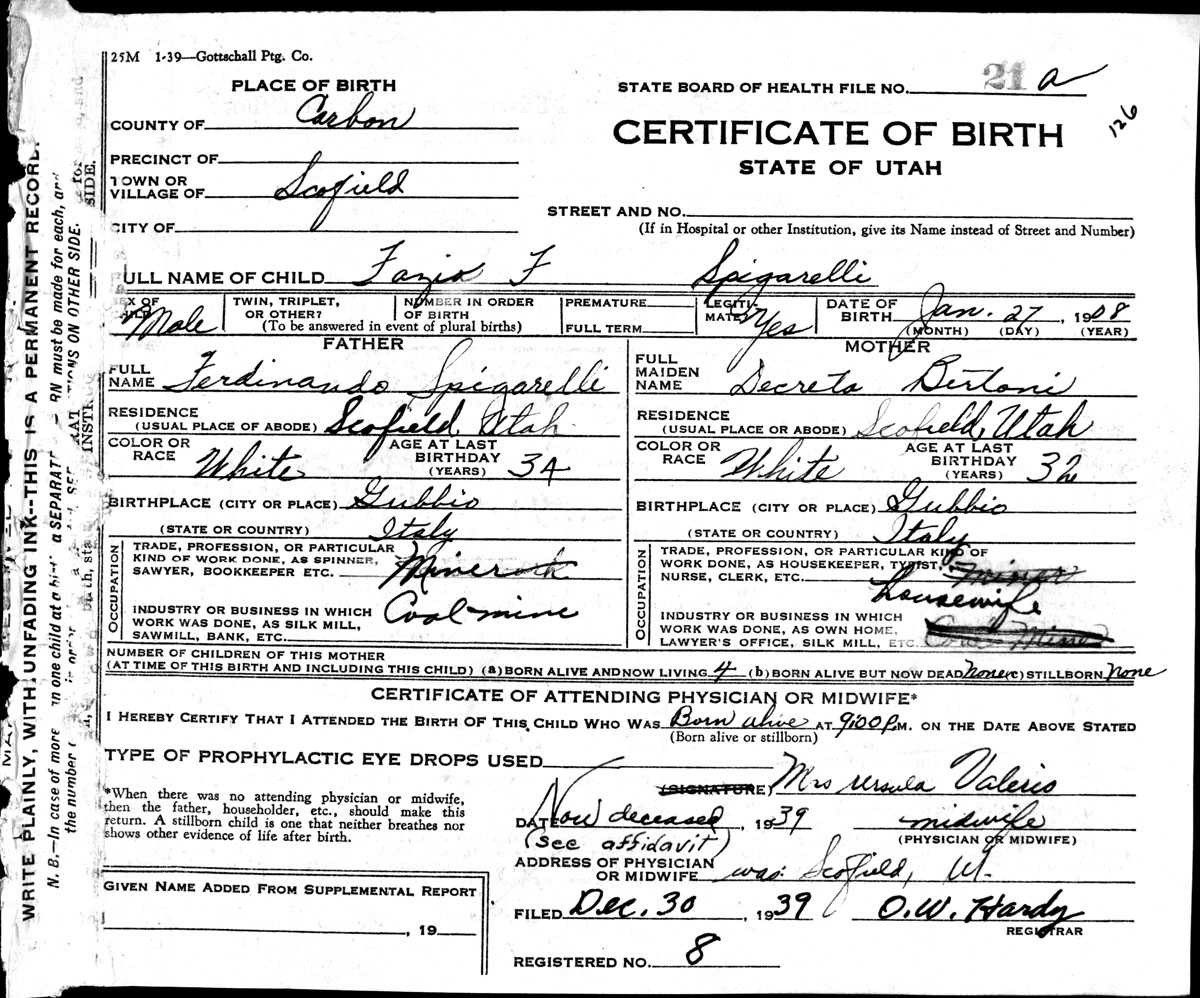 25M 1-39—Gottschall Ptg. Co.
PLACE OF BIRTH
STATE BOARD OF HEALTH FILE NO. 21 a
126
COUNTY OF Carbon
CERTIFICATE OF BIRTH
PRECINCT OF
STATE OF UTAH
TOWN OR
VILLAGE OF Scofield
STREET AND NO.
CITY OF
(If in Hospital or other Institution, give its Name instead of Street and Number)
FULL NAME OF CHILD Fazio F Spigarelli
SEX OF
CHILD Male
TWIN, TRIPLET,
OR OTHER?
NUMBER IN ORDER
OF BIRTH
(To be answered in event of plural births)
PREMATURE
FULL TERM
LEGITI-
MATE? Yes
DATE OF
BIRTH Jan. 27, 1908
(MONTH) (DAY) (YEAR)
FATHER
FULL
NAME Ferdinando Spigarelli
RESIDENCE
(USUAL PLACE OF ABODE) Scofield, Utah
COLOR OR
RACE White
AGE AT LAST
BIRTHDAY
(YEARS) 34
BIRTHPLACE (CITY OR PLACE) Gubbio
(STATE OR COUNTRY) Italy
OCCUPATION
TRADE, PROFESSION, OR PARTICULAR
KIND OF WORK DONE, AS SPINNER,
SAWYER, BOOKKEEPER ETC. Miner
INDUSTRY OR BUSINESS IN WHICH
WORK WAS DONE, AS SILK MILL,
SAWMILL, BANK, ETC. Coal mine
MOTHER
FULL
MAIDEN
NAME Decreta Bertoni
RESIDENCE
(USUAL PLACE OF ABODE) Scofield, Utah
COLOR OR
RACE White
AGE AT LAST
BIRTHDAY
(YEARS) 32
BIRTHPLACE (CITY OR PLACE) Gubbio
(STATE OR COUNTRY) Italy
OCCUPATION
TRADE, PROFESSION, OR PARTICULAR KIND OF
WORK DONE, AS HOUSEKEEPER, TYPIST,
NURSE, CLERK, ETC. Miner
housewife
INDUSTRY OR BUSINESS IN WHICH
WORK WAS DONE, AS OWN HOME,
LAWYER'S OFFICE, SILK MILL, ETC. Coal Mine
NUMBER OF CHILDREN OF THIS MOTHER
(AT TIME OF THIS BIRTH AND INCLUDING THIS CHILD) (a) BORN ALIVE AND NOW LIVING 4 (b) BORN ALIVE BUT NOW DEAD None (c) STILLBORN None
CERTIFICATE OF ATTENDING PHYSICIAN OR MIDWIFE*
I HEREBY CERTIFY THAT I ATTENDED THE BIRTH OF THIS CHILD WHO WAS Born alive AT 9:00 P.M. ON THE DATE ABOVE STATED
(Born alive or stillborn)
TYPE OF PROPHYLACTIC EYE DROPS USED
*When there was no attending physician or midwife,
then the father, householder, etc., should make this
return. A stillborn child is one that neither breathes nor
shows other evidence of life after birth.
(SIGNATURE) Mrs Ursula Valerio
DATE Now deceased, 1939 midwife
(see affidavit) (PHYSICIAN OR MIDWIFE)
ADDRESS OF PHYSICIAN
OR MIDWIFE was: Scofield, Ut.
GIVEN NAME ADDED FROM SUPPLEMENTAL REPORT
, 19
FILED Dec. 30, 1939 O.W. Hardy
REGISTRAR
REGISTERED NO. 8
WRITE PLAINLY, WITH UNFADING INK--THIS IS A PERMANENT RECORD.
N. B.—In case of more one child at a a SEPARATE must be made for each, and
the number
ON OTHER SIDE.